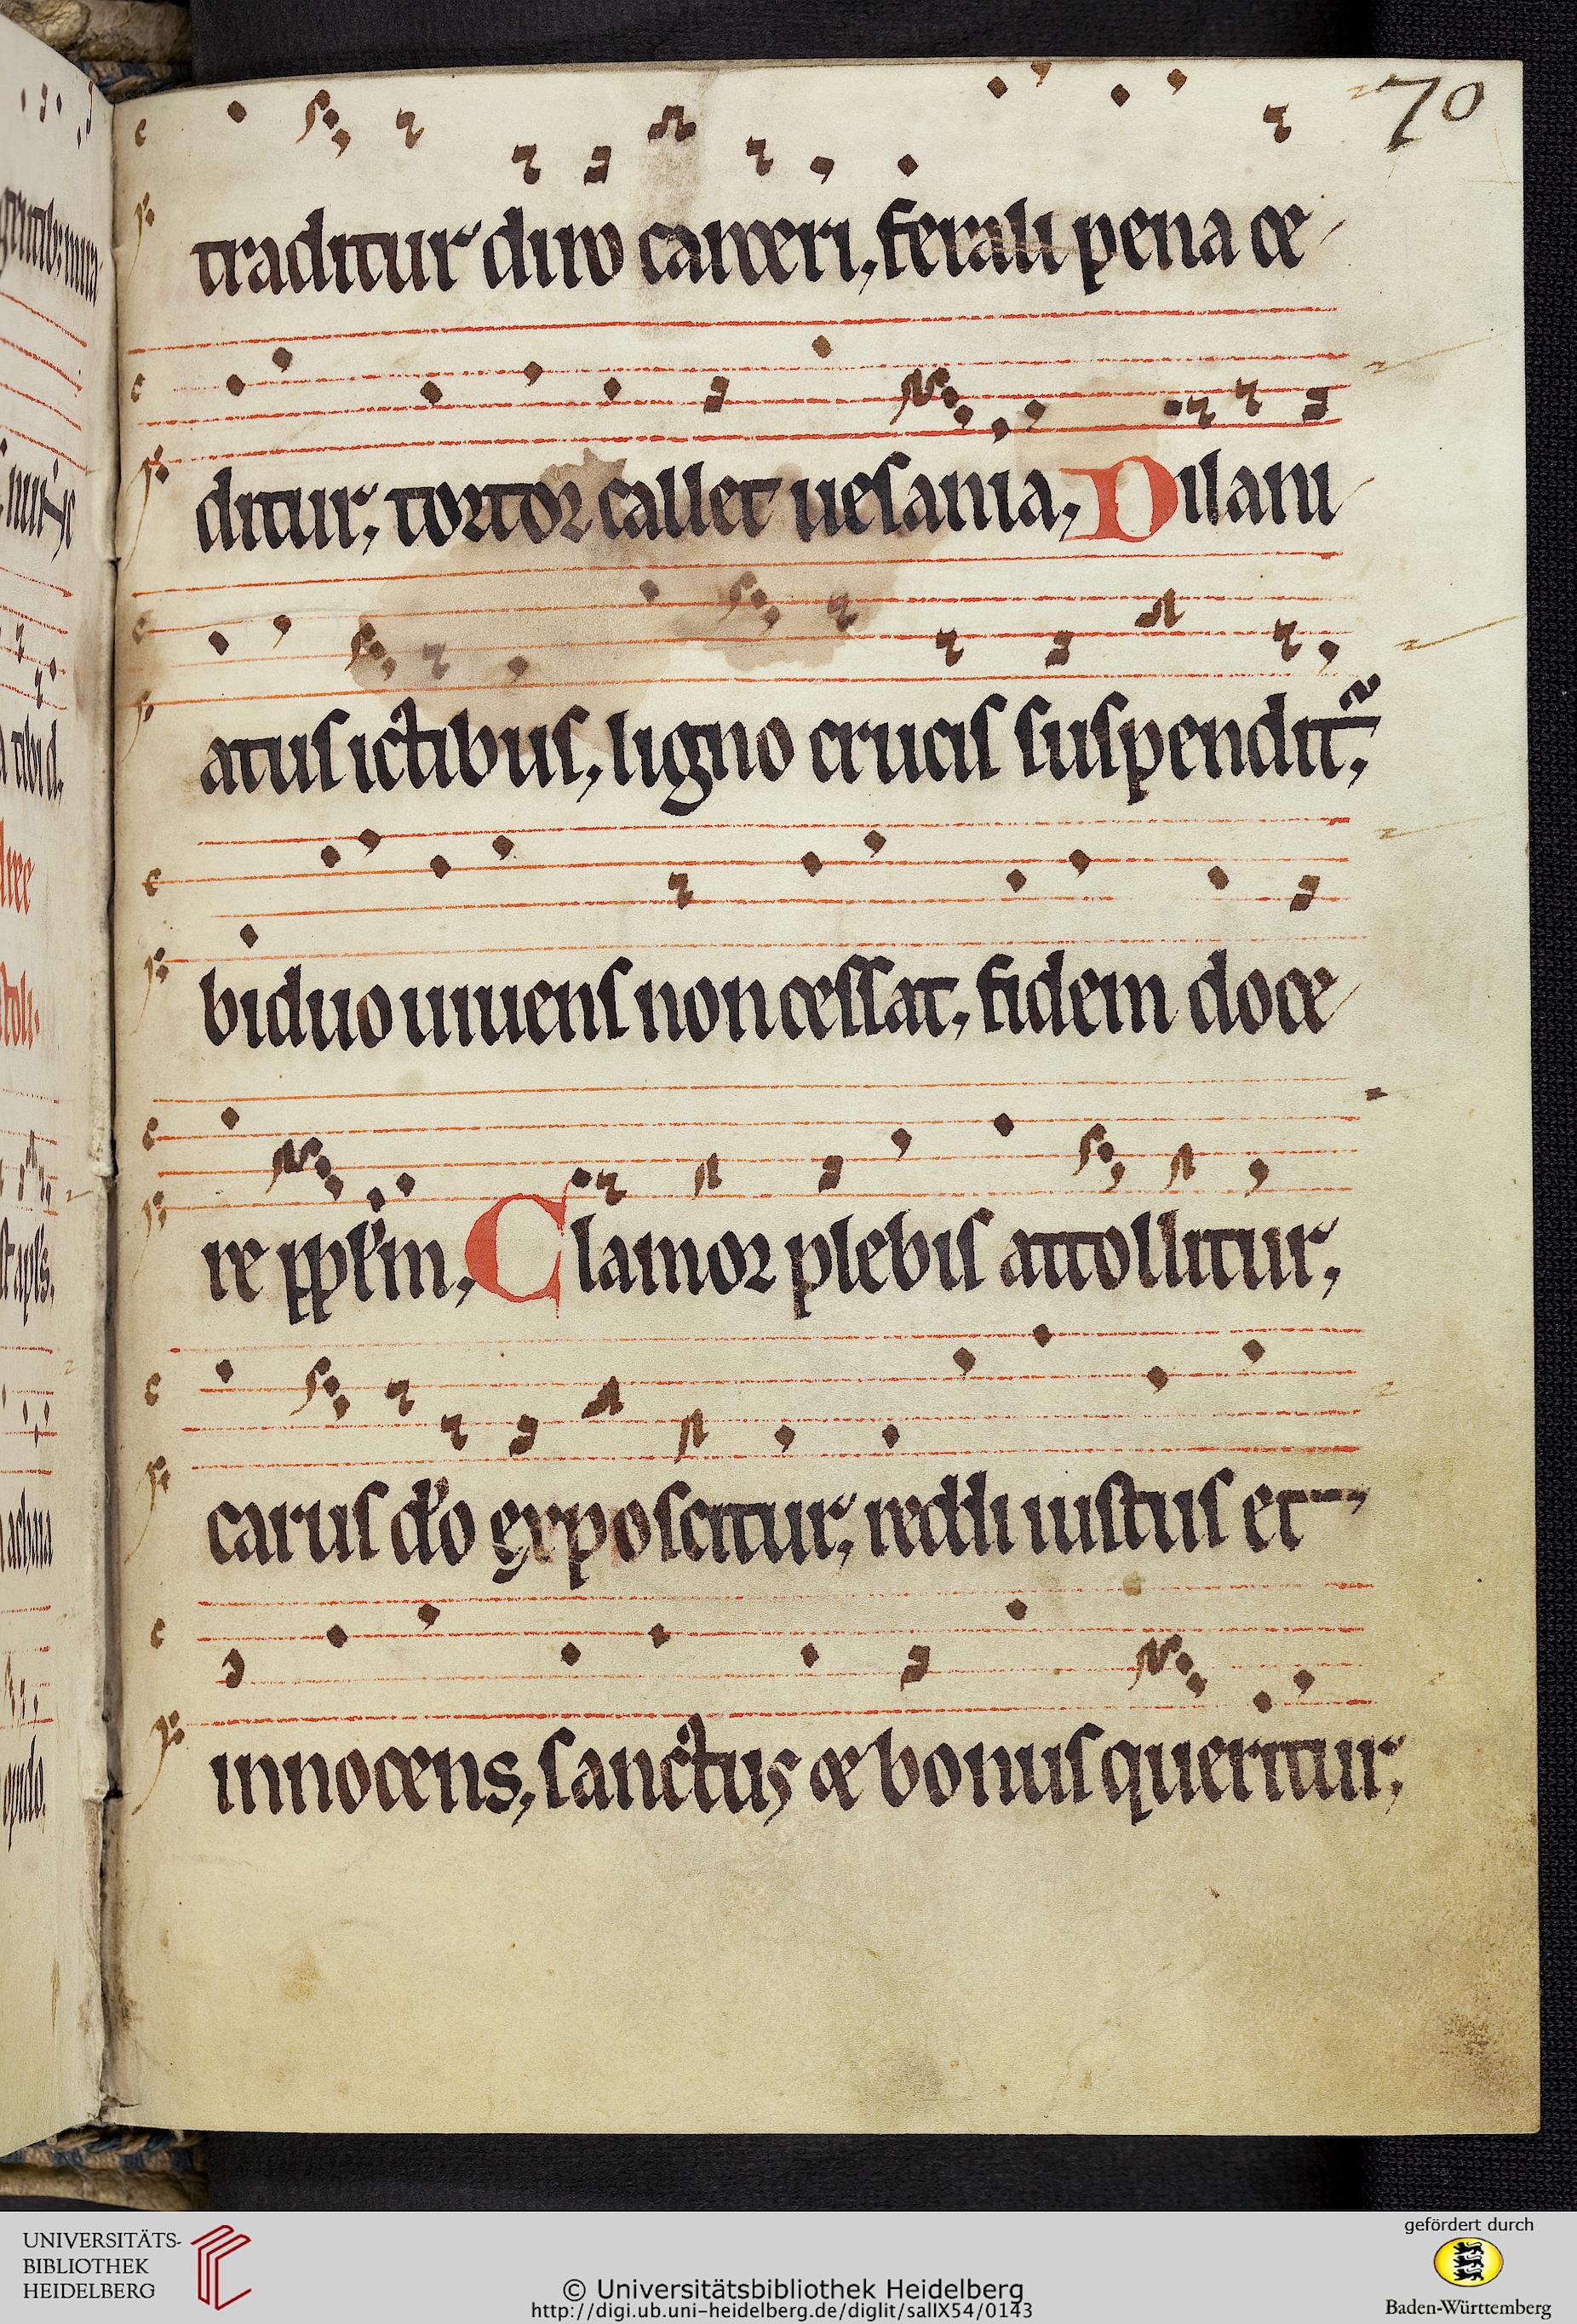 70
traditur diro carceri, ferali pena ce
ditur, tortor callet uesania, Dilani
atus ictibus, ligno crucis suspendit᷑,
biduo uiuens non cessat, fidem doce
re pplm̄, Clamor plebis attollitur,
carus deo exposcitur, reddi iustus et
innocens, sanctus ac bonus queritur,
UNIVERSITÄTS-
BIBLIOTHEK
HEIDELBERG
© Universitätsbibliothek Heidelberg
http://digi.ub.uni-heidelberg.de/diglit/salIX54/0143
gefördert durch
Baden-Württemberg